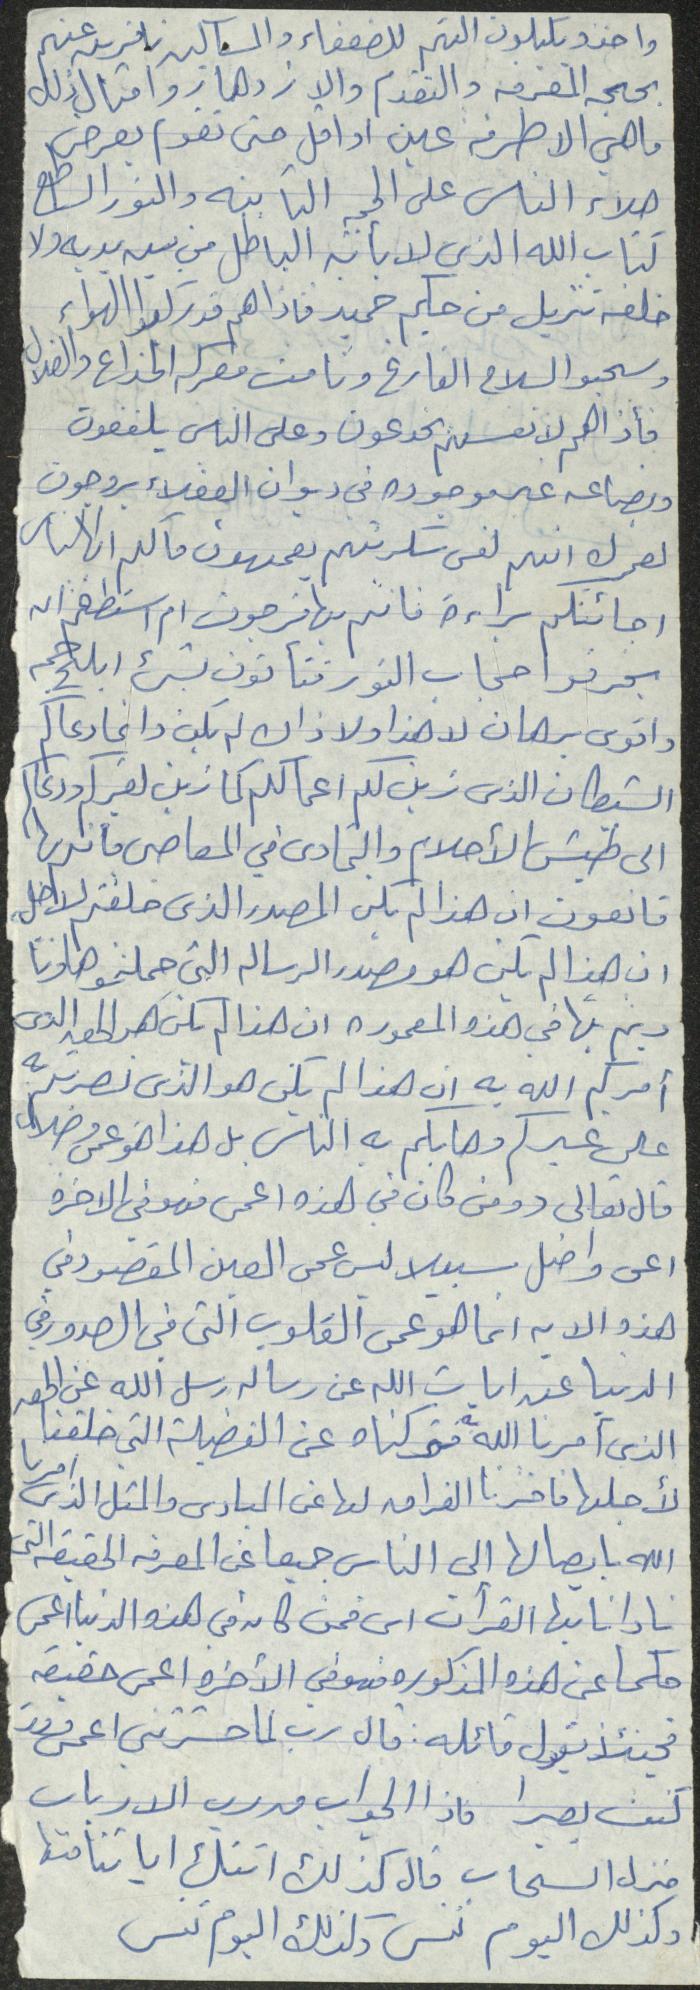 واخذو يكيلون التهم للضعفاء والمساكين نافرين عنهم
بحجه المعرفه والتقدم والازدهار وامثال ذلك
ماهي الا طرفة عين او اقل حتى تقوم بعرض
هلاء الناس على الحجه التأبينه والنور الساطع
كتاب الله الذي لا يأتيه الباطل من بين يديه ولا
خلفه تنزيل من حكيم حميد فاذا هم قد ركبوا الهواء
وسحبو السلاح الفارغ وقامت معركه الخداع والضلال
فأذا هم لانفسهم يخدعون وعلى الناس يلفقون
وبضاعه غير موجوده في ديوان العقلاء يروجون
لعمرك انهم لفي سكرتهم يعمهون مالكم ايها الناس
اجائتكم براءة فانتم بها فرحون ام استطعتم ان
تخرقوا حجاب النور فتأتون بشئ ابلغ حجه
واقوى برهان لا هذا ولا ذاك لم يكن وانما دعاكم
الشيطان الذي زين لكم اعمالكم كما زين لغيركم ودعاكم
الى طيش الأحلام والتمادى في المعاصي فأنتم لها
قانعون ان هذا لم يكن المصدر الذي خلقتم لاجله
ان هذا لم يكن هو مصدر الرساله التي حملتموها ونا
ديتم بها في هذه المعموره ان هذا لم يكن هو الحق الذي
أمركم الله به ان هذا لم يكن هو الذي نصرتم به
على غيركم وهابكم به الناس بل هذا هو عمى وضلال
قال تعالى ومن كان في هذه اعمى فهو في الاخره
اعمى واضل سبيلا ليس عمى العين المقصود في
هذه الايه انما هو عمى القلوب التي في الصدور في
الدنيا عن ايات الله عن رساله رسل الله عن الحق
الذي أمرنا الله به فتركناه عن الفضيلة التي خلقنا
لأجلها فاخترنا الفرار منها عن المبادى والمثل الذي امرنا
الله بايصالها الى الناس جميعا عن المعرفه الحقيقه التي
نادانا بها القرآن اى فمن كان في هذه الدنيا اعمى
حكما عن هذه المذكوره فهو في الأخره اعمى حقيقه
فحينئذ تقول قائله: قال رب لما حشرتني اعمى وقد
كنت بصيرا فاذا الجواب من رب الارباب
منزل السحاب قال كذلك اتتك اياتنا فنسيتها
وكذلك اليوم تنسى وكذلك اليوم تنسى